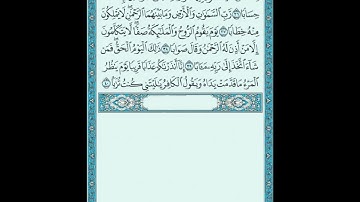 حِسَابًا ٣٦ رَّبِّ السَّمَٰوَٰتِ وَالْأَرْضِ وَمَا بَيْنَهُمَا الرَّحْمَٰنِ لَا يَمْلِكُونَ
مِنْهُ خِطَابًا ٣٧ يَوْمَ يَقُومُ الرُّوحُ وَالْمَلَٰٓئِكَةُ صَفًّا لَّا يَتَكَلَّمُونَ
إِلَّا مَنْ أَذِنَ لَهُ الرَّحْمَٰنُ وَقَالَ صَوَابًا ٣٨ ذَٰلِكَ الْيَوْمُ الْحَقُّ فَمَن
شَآءَ اتَّخَذَ إِلَىٰ رَبِّهِ مَـَٔابًا ٣٩ إِنَّآ أَنذَرْنَٰكُمْ عَذَابًا قَرِيبًا يَوْمَ يَنظُرُ
الْمَرْءُ مَا قَدَّمَتْ يَدَاهُ وَيَقُولُ الْكَافِرُ يَٰلَيْتَنِي كُنتُ تُرَٰبًا ٤٠